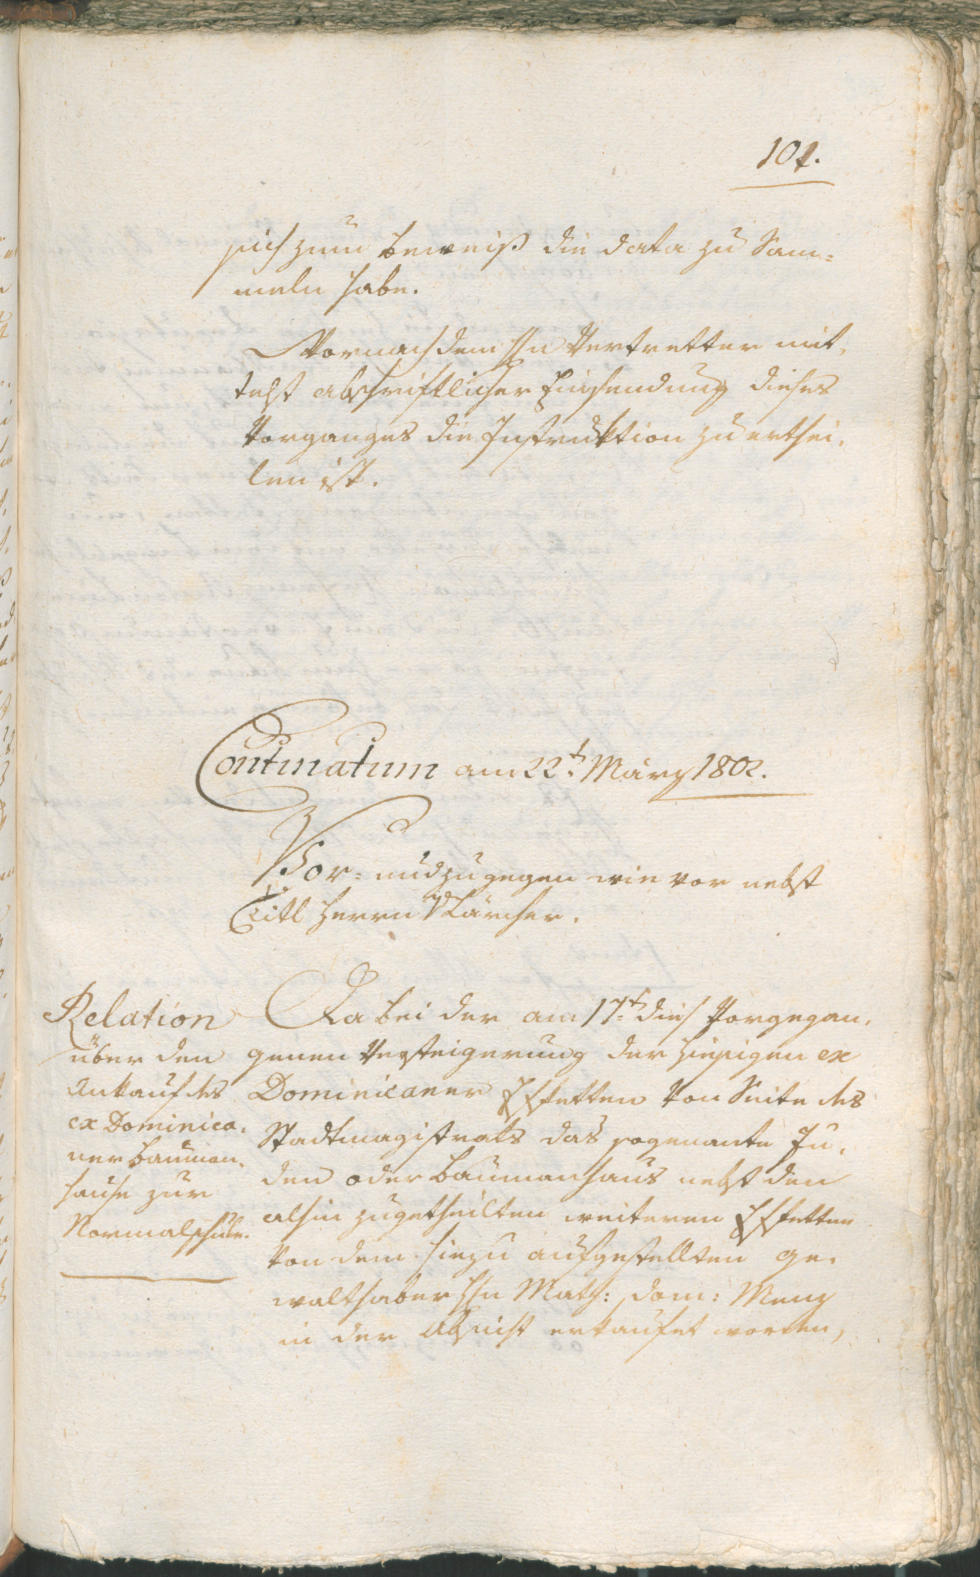 101.
sich zum beweiß die data zu Sam=
meln habe.
Wornach dem Hn Vertretter mit=
telst abschriftlicher Hinsendung dieses
Vorganges die Instruktion zu erthei=
len ist.
Continuatum am 22t. März 1802.
Vor= und zugegen wie vor nebst
Titl Herrn Kärcher.
Relation
über den
Ankauf des
ex Dominica=
ner bauman=
hause zur
Normalschule.
Da bei der am 17t. dies Vorgegan=
genen Versteigerung der hiesigen ex
Dominicaner Effetten von Seite des
Stadtmagistrats das sogenante Ju=
den oder baumanhaus nebst den
alhin zugetheilten weiteren Effetten
von dem hiezu aufgestellten ge=
walthaber Hn Math: Dom: Menz
in der Absicht erkaufet worden,